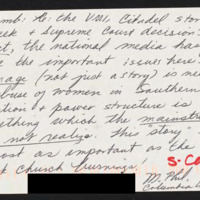 omb: to: the VMI, Citadel stor
eek & Supreme Court decision
ct, the national media has
the important issues here
rage (not just a story) is ne
buse of women in Southern
tion & power structure is
ething which the mainstre
not realize. This story
ost as important as the
t church burnings.
S. Ca
M. Phil.
Columbia